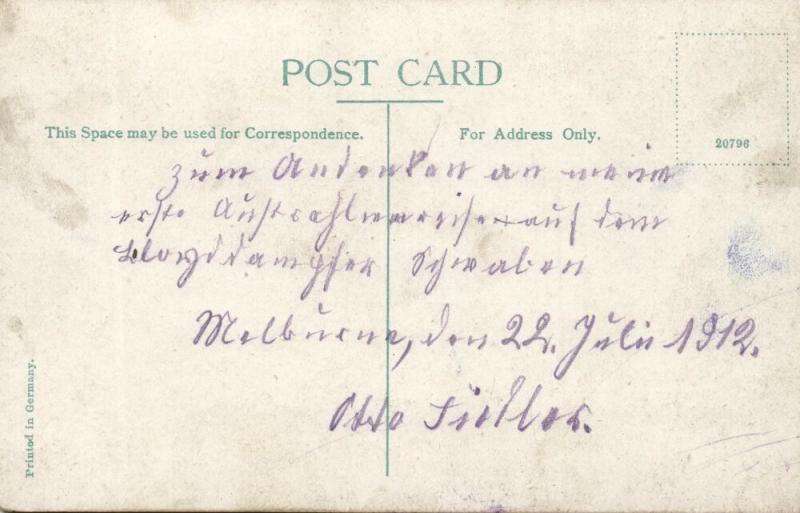 POST CARD
This Space may be used for Correspondence.
For Address Only.
20796
zum Andenken an meine
erste Australienreise auf dem
Lloyddampfer Schwaben
Melburne, den 22. Juli 1912.
Otto Fiedler.
Printed in Germany.